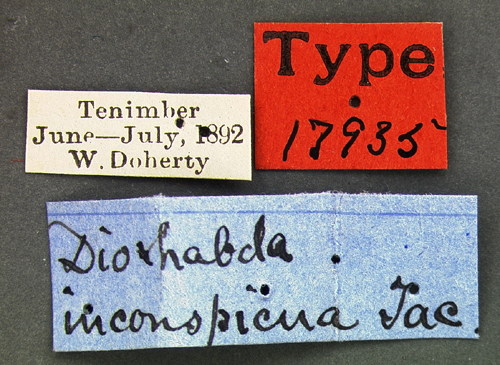 Tenimber
June—July, 1892
W. Doherty
Type
17935
Diorhabda
inconspicua Jac.